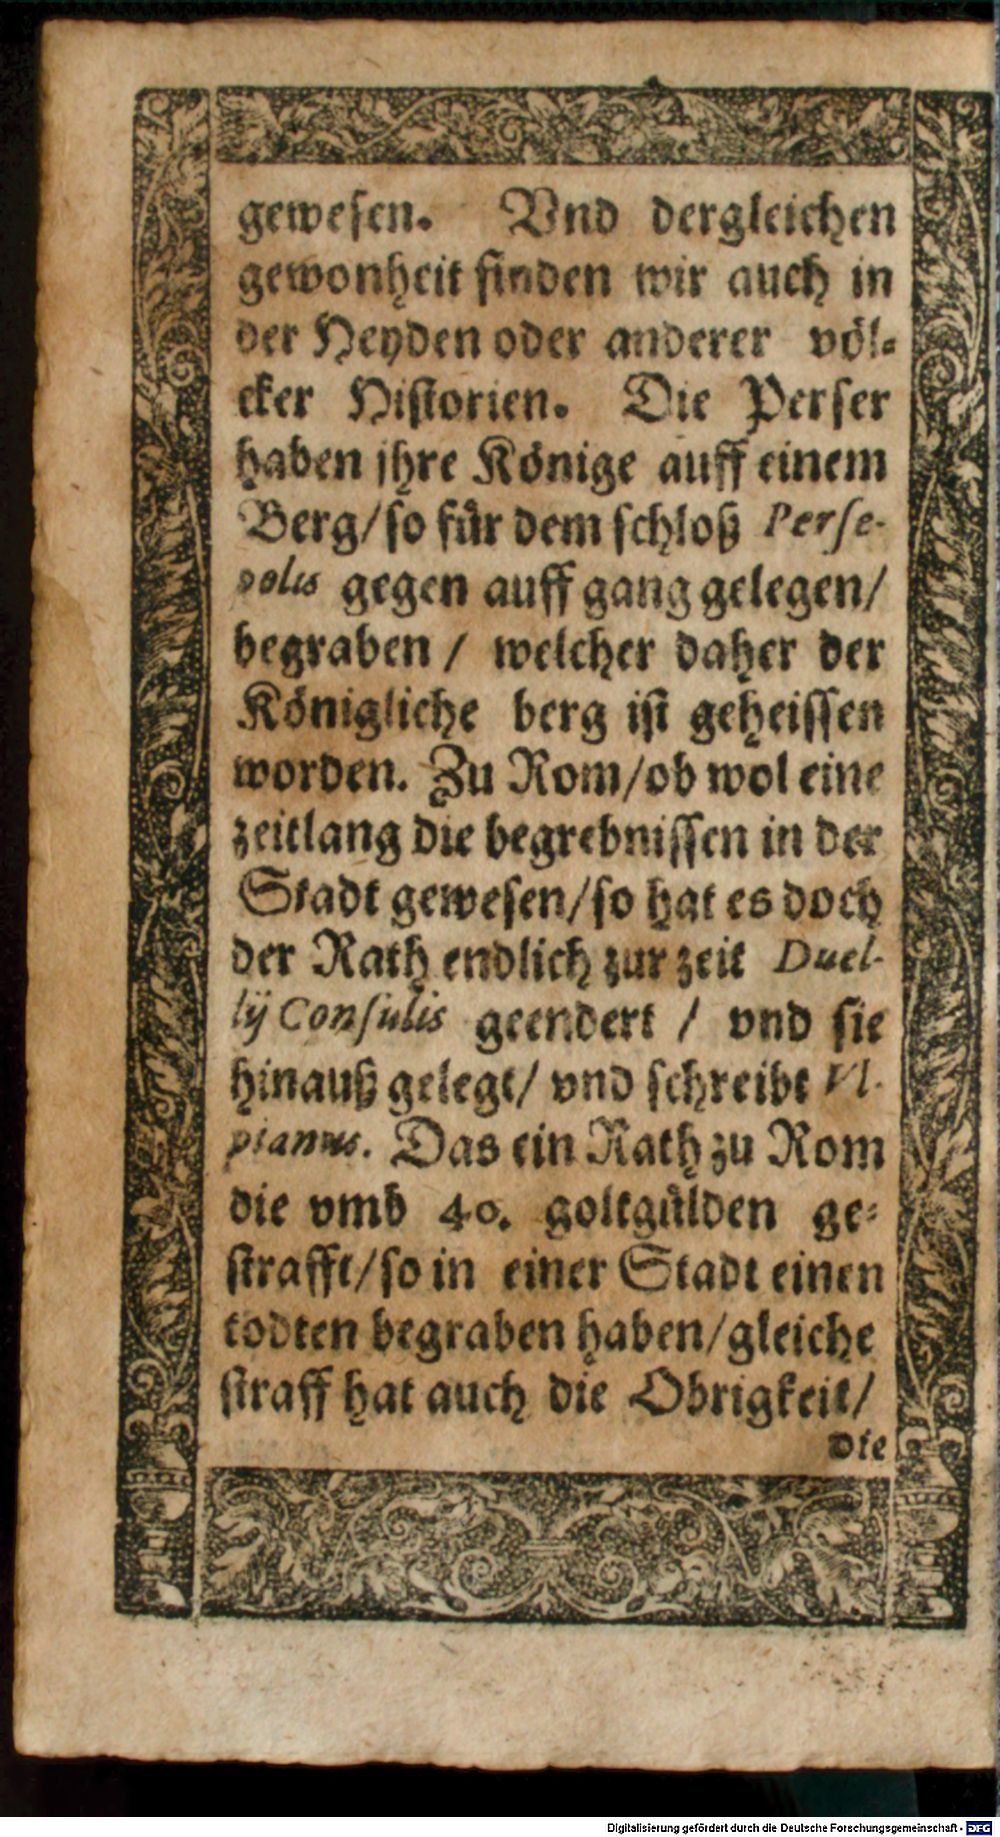 gewesen. Vnd dergleichen
gewonheit finden wir auch in
der Heyden oder anderer völ-
cker Historien. Die Perser
haben jhre Könige auff einem
Berg/so für dem schloß Perse-
polis gegen auff gang gelegen/
begraben / welcher daher der
Königliche berg ist geheissen
worden. Zu Rom/ob wol eine
zeitlang die begrebnissen in der
Stadt gewesen/so hat es doch
der Rath endlich zur zeit Duel-
lij Consulis geendert / vnd sie
hinauß gelegt/ vnd schreibt Vl-
pianus. Das ein Rath zu Rom
die vmb 40. goltgülden ge-
strafft/so in einer Stadt einen
todten begraben haben/gleiche
straff hat auch die Obrigkeit/
die
Digitalisierung gefördert durch die Deutsche Forschungsgemeinschaft - DFG